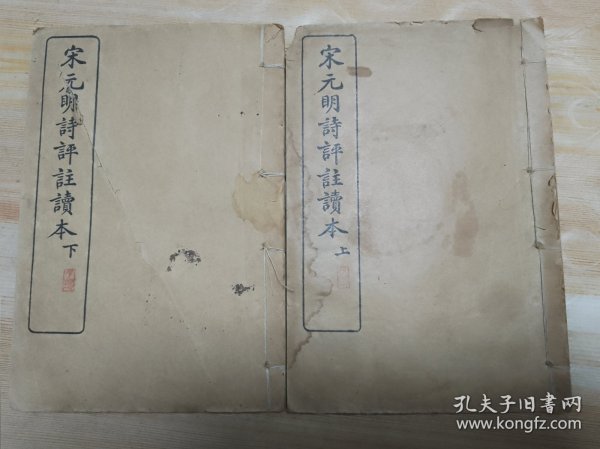 宋元明詩評註讀本 上
宋元明詩評註讀本 下
孔夫子旧书网
www.kongfz.com